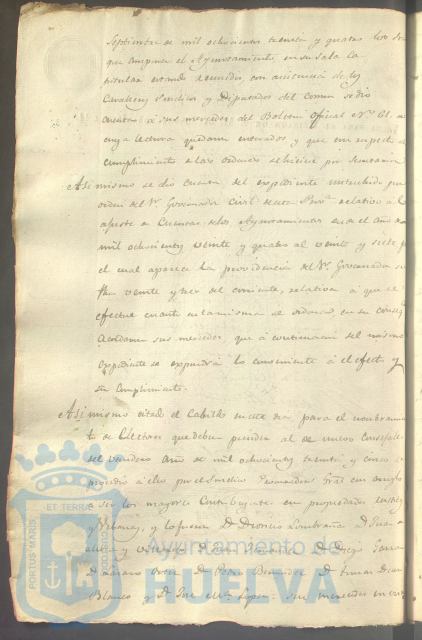 Septiembre de mil ochocientos treinta y quatro los Sres
que componen el Ayuntamiento, en su sala Ca
pitular estando reunidos, con asistencia de los
Cavalleros Sindicos y Diputados del comun se dió
cuenta á sus mercedes del Boletin Oficial Nº 61. de
cuya lectura quedaron enterados y que con respecto al
cumplimiento á las ordenes
Asi mismo se dio cuenta del expediente instruido por
orden del Sr. Governador Civil de esta Provª relativo á
ajuste de Cuentas de los Ayuntamientos desde el año de
mil ochocientos veinte y quatro al veinte y siete
el cual aparece la providencia del Sr. Governador su
fha veinte y tres del corriente, relativa á que se
efectue cuanto en la misma se ordena, en su conseqª
Acordaron sus mercedes que á continuacion del mismo
expediente se expondrá lo conveniente á el efecto y
su cumplimiento.
Asi mismo citado el Cabildo en este dia para el nombramien
to de Electores que deben al de nuevo Consejo
del venidero año de mil ochocientos treinta y cinco se
procedió á ello por el Sindico Personero Gral con arreglo
á ser los mayores Contribuyentes en propiedades
y lo fueron D. Dionisio D. Juan
D. Diego Garra
D. D. Pedro D. Tomas
Blanco y D. José Mª Lopez: sus mercedes en vista
PORTUS MARIS
ET TERRA
CUSTODIA
Ayuntamiento de
HUELVA